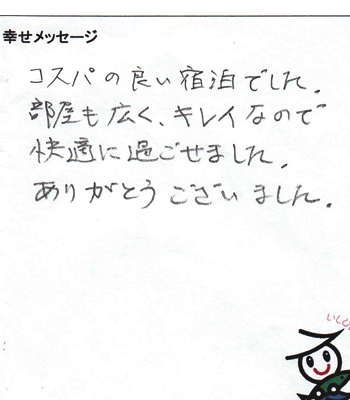 幸せメッセージ
コスパの良い宿泊でした。
部屋も広く、キレイなので
快適に過ごせました。
ありがとうございました。